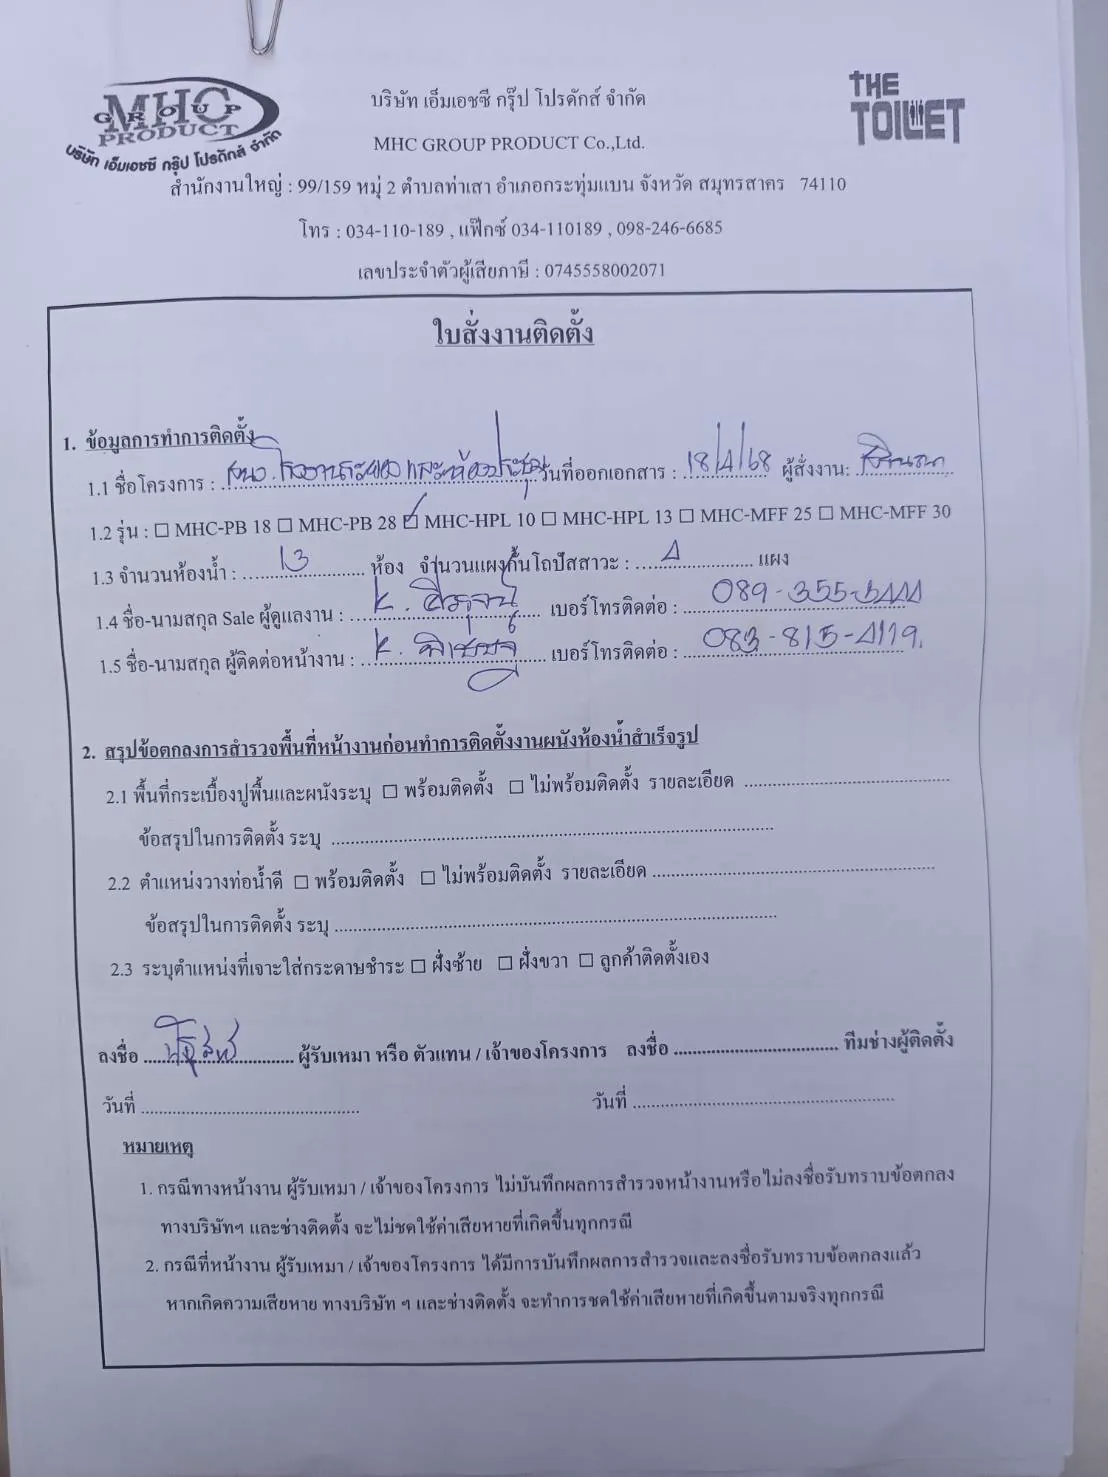 MHC
GROUP
PRODUCT
บริษัท เอ็มเอชซี กรุ๊ป โปรดักส์ จำกัด
THE
TOILET
บริษัท เอ็มเอชซี กรุ๊ป โปรดักส์ จำกัด
MHC GROUP PRODUCT Co.,Ltd.
สำนักงานใหญ่ : 99/159 หมู่ 2 ตำบลท่าเสา อำเภอกระทุ่มแบน จังหวัด สมุทรสาคร 74110
โทร : 034-110-189 , แฟ๊กซ์ 034-110189 , 098-246-6685
เลขประจำตัวผู้เสียภาษี : 0745558002071
ใบสั่งงานติดตั้ง
1. ข้อมูลการทำการติดตั้ง
1.1 ชื่อโครงการ : และห้องประชุม วันที่ออกเอกสาร : 18/4/68 ผู้สั่งงาน:
1.2 รุ่น : ☐ MHC-PB 18 ☐ MHC-PB 28 ☑ MHC-HPL 10 ☐ MHC-HPL 13 ☐ MHC-MFF 25 ☐ MHC-MFF 30
1.3 จำนวนห้องน้ำ : 13 ห้อง จำนวนแผงกั้นโถปัสสาวะ : 4 แผง
1.4 ชื่อ-นามสกุล Sale ผู้ดูแลงาน : K. เบอร์โทรติดต่อ : 089-355-
1.5 ชื่อ-นามสกุล ผู้ติดต่อหน้างาน : K. เบอร์โทรติดต่อ : 083-815-4119
2. สรุปข้อตกลงการสำรวจพื้นที่หน้างานก่อนทำการติดตั้งงานผนังห้องน้ำสำเร็จรูป
2.1 พื้นที่กระเบื้องปูพื้นและผนังระบุ ☐ พร้อมติดตั้ง ☐ ไม่พร้อมติดตั้ง รายละเอียด
ข้อสรุปในการติดตั้ง ระบุ
2.2 ตำแหน่งวางท่อน้ำดี ☐ พร้อมติดตั้ง ☐ ไม่พร้อมติดตั้ง รายละเอียด
ข้อสรุปในการติดตั้ง ระบุ
2.3 ระบุตำแหน่งที่เจาะใส่กระดาษชำระ ☐ ฝั่งซ้าย ☐ ฝั่งขวา ☐ ลูกค้าติดตั้งเอง
ลงชื่อ ผู้รับเหมา หรือ ตัวแทน / เจ้าของโครงการ ลงชื่อ ทีมช่างผู้ติดตั้ง
วันที่ วันที่
หมายเหตุ
1. กรณีทางหน้างาน ผู้รับเหมา / เจ้าของโครงการ ไม่บันทึกผลการสำรวจหน้างานหรือไม่ลงชื่อรับทราบข้อตกลง
ทางบริษัทฯ และช่างติดตั้ง จะไม่ชดใช้ค่าเสียหายที่เกิดขึ้นทุกกรณี
2. กรณีที่หน้างาน ผู้รับเหมา / เจ้าของโครงการ ได้มีการบันทึกผลการสำรวจและลงชื่อรับทราบข้อตกลงแล้ว
หากเกิดความเสียหาย ทางบริษัท ฯ และช่างติดตั้ง จะทำการชดใช้ค่าเสียหายที่เกิดขึ้นตามจริงทุกกรณี